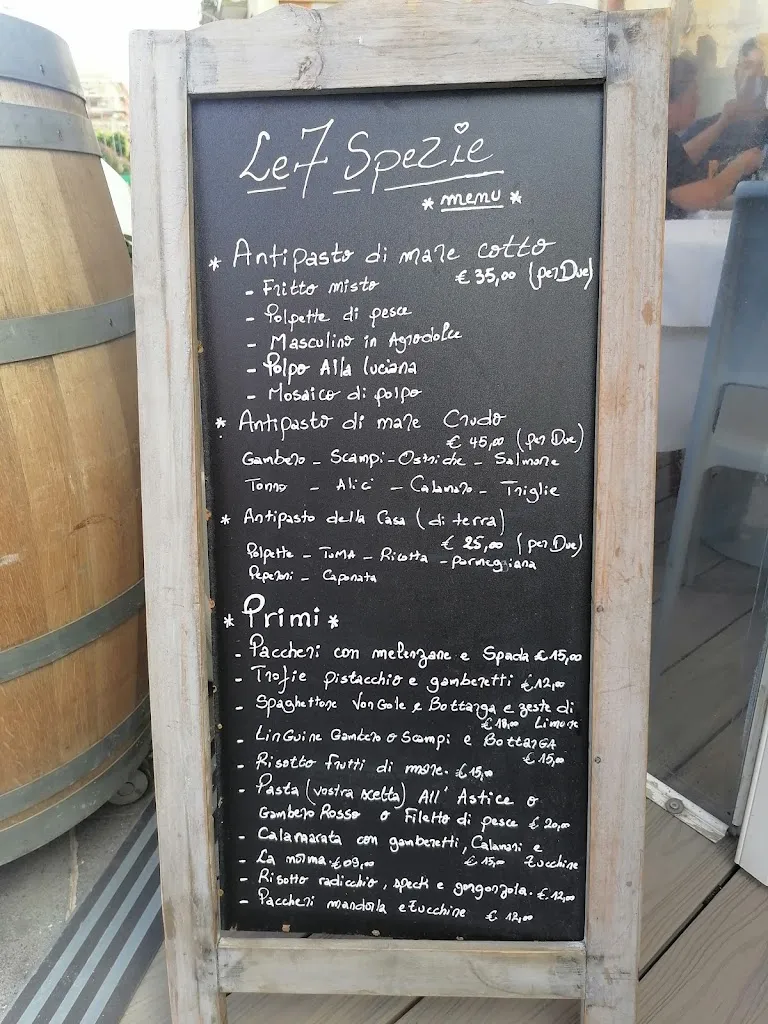 Le 7 Spezie
* menu *
* Antipasto di mare cotto
€ 35,00 (per Due)
- Fritto misto
- Polpette di pesce
- Masculino in Agrodolce
- Polpo Alla luciana
- Mosaico di polpo
* Antipasto di mare Crudo
€ 45,00 (per Due)
Gambero - Scampi - Ostriche - Salmone
Tonno - Alici - Calamaro - Triglie
* Antipasto della Casa (di terra)
€ 25,00 (per Due)
Polpette - TOMA - Ricotta - parmeggiana
Peperoni - Caponata
* Primi *
- Paccheri con melenzane e Spada € 15,00
- Trofie pistacchio e gamberetti € 12,00
- Spaghettone Vongole e Bottarga e zeste di
Limone
- Linguine Gambero o Scampi e BottarGA
€ 15,00
- Risotto frutti di mare. € 15,00
- Pasta (vostra scelta) All' Astice o
Gambero Rosso o Filetto di pesce € 20,00
- Calamarata con gamberetti, Calamari e
€ 15,00 Zucchine
- La norma. € 09,00
- Risotto radicchio, speck e gorgonzola. € 12,00
- Paccheri mandorla e Zucchine € 12,00